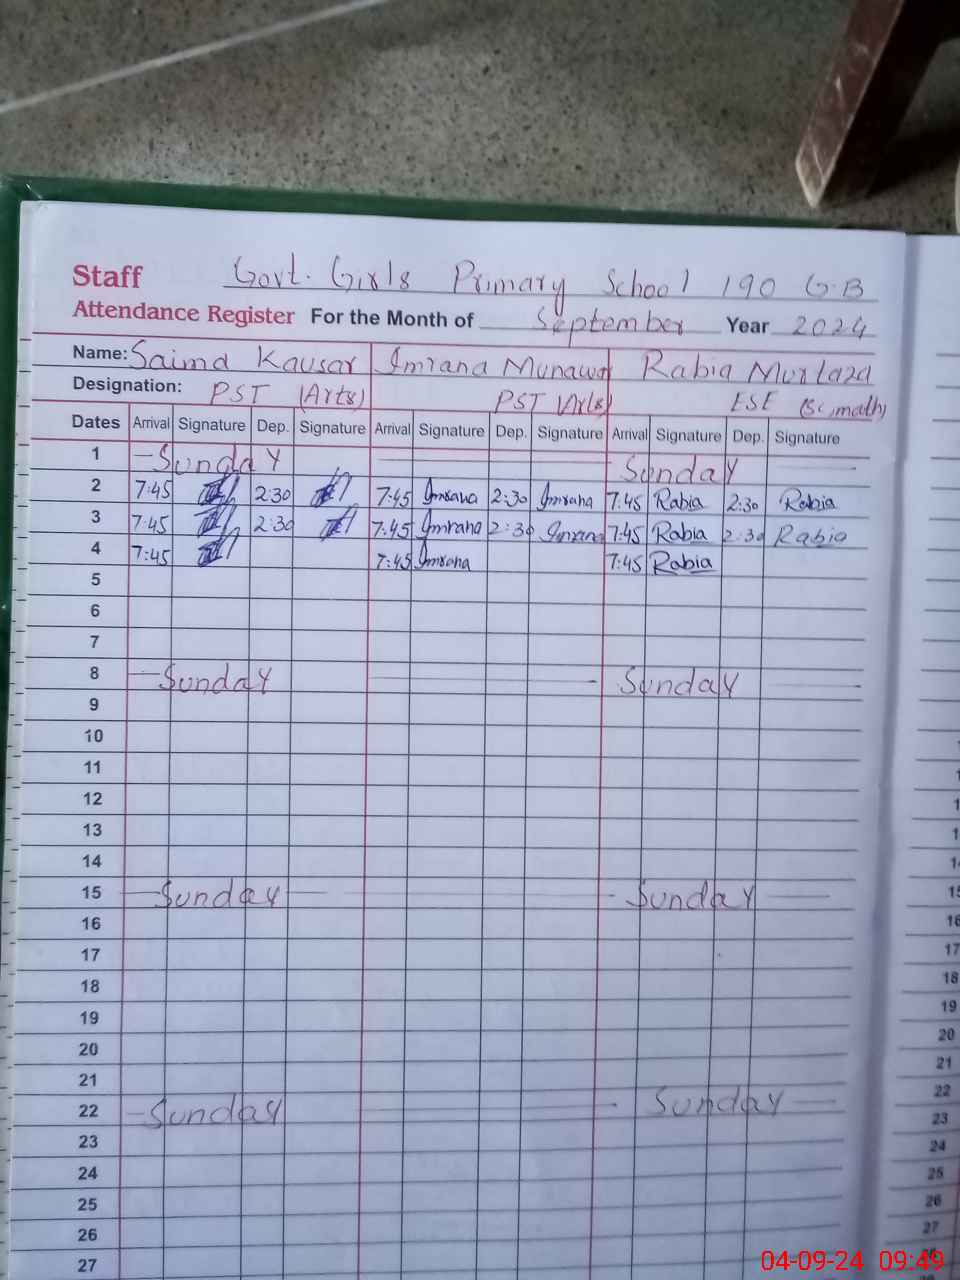 Staff Govt. Girls Primary School 190 G.B
Attendance Register For the Month of September Year 2024
Name: Saima Kausar Imrana Munawar Rabia Murtaza
Designation: PST (Arts) PST (Arts) ESE (Sc, math)
Dates Arrival Signature Dep. Signature Arrival Signature Dep. Signature Arrival Signature Dep. Signature
1 Sunday Sunday
2 7:45 2:30 7:45 Imrana 2:30 Imrana 7:45 Rabia 2:30 Rabia
3 7:45 2:30 7:45 Imrana 2:30 Imrana 7:45 Rabia 2:30 Rabia
4 7:45 7:45 Imrana 7:45 Rabia
5
6
7
8 Sunday Sunday
9
10
11
12
13
14
15 Sunday Sunday 15
16 16
17 17
18 18
19 19
20 20
21 21
22 Sunday Sunday 22
23 23
24 24
25 25
26 26
27 27
04-09-24 09:49